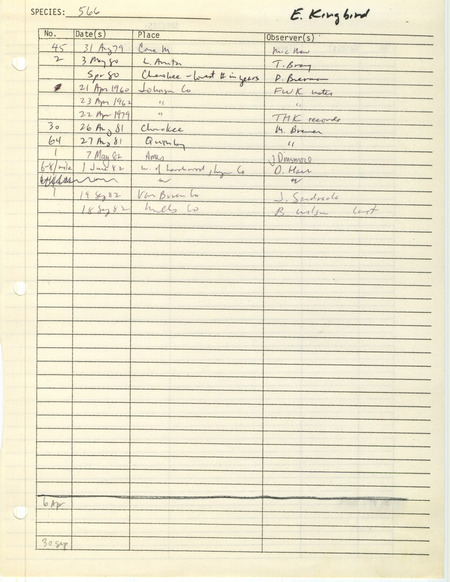 SPECIES: 566 E. Kingbird
No. Date(s) Place Observer(s)
45 31 Aug 79 Cone M
2 3 May 80 L. Anita T. Bray
Spr 80 Cherokee - lowest # in years D. Bierman
21 Apr 1960 Johnson Co FWK notes
23 Apr 1962 " "
22 Apr 1979 " THK records
30 26 Aug 81 Cherokee M. Brewer
64 27 Aug 81 Quimby "
1 7 May 82 Ames J Dinsmore
6-8/mile 1 June 82 W. of
1 19 Sep 82 Van Buren Co J. Sandrock
18 Sep 82 Mills Co B Wilson last
6 Apr
30 Sep